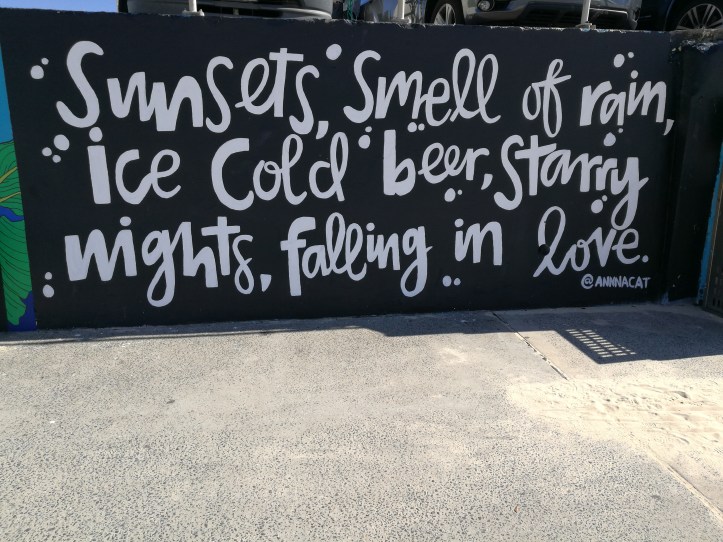 Sunsets, smell of rain,
ice cold beer, starry
nights, falling in love.
@ANNNACAT